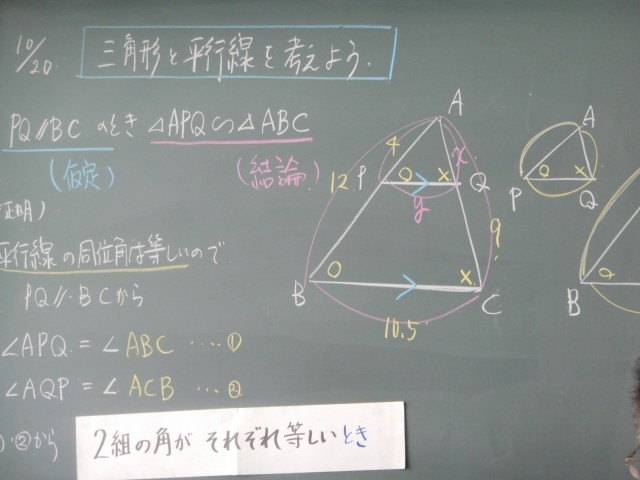 10/20. 三角形と平行線を考えよう.
PQ//BC のとき △APQ∽△ABC
(仮定) (結論)
証明)
平行線の同位角は等しいので
PQ//BCから
∠APQ = ∠ABC ‥‥①
∠AQP = ∠ACB ‥‥②
②から
2組の角が それぞれ等しいとき
A
4
x
12
P
Q
y
9
B
C
10.5
A
P
Q
B